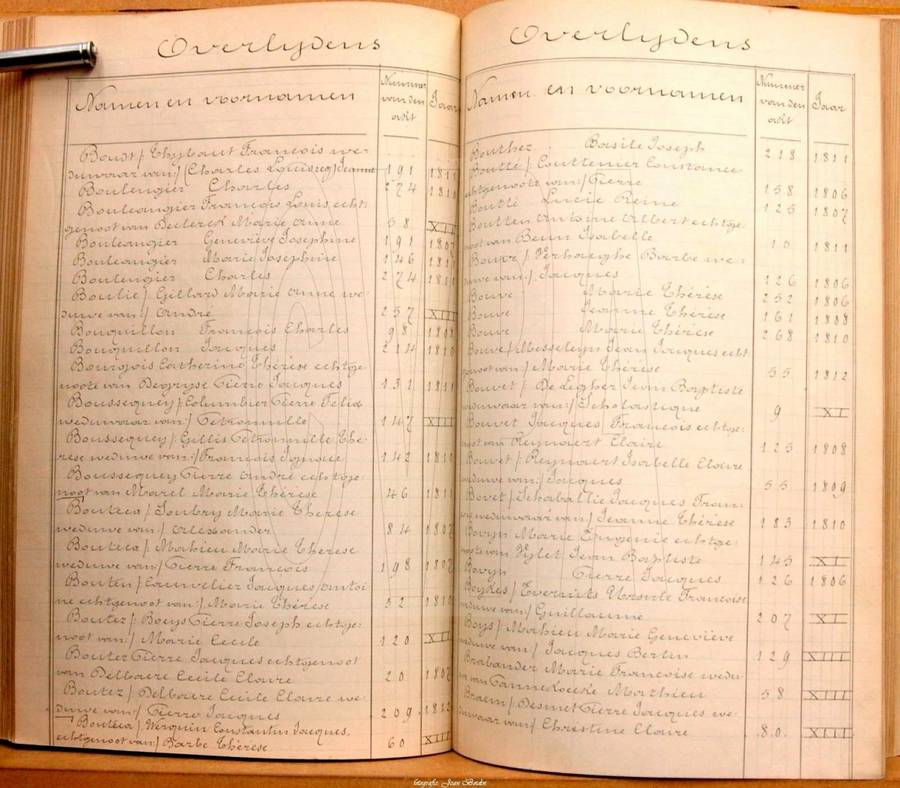 Overlydens
Namen en voornamen
Nummer
van den
acht
Jaar
Boudt / Thybaut Francois we-
duwaar van:/ (Charles Louis zeg) Jeanne 191 181
Boulengier Charles 274 1811
Bouleangier Francois Louis, echt-
genoot van Declerck Marie Anne 58 XII
Bouleangier Geneviève Josephine 191 1807
Bouleangier Marie Josephine 146 181
Boulengier Charles 274 181
Boulie / Gillard Marie Anne we-
duwe van:/ André 257 XII
Bouquillon Francois Charles 98 180
Bouquillon Jacques 214 1810
Bourgois Catherine Thérèse echtge-
noote van Degryse Pierre Jacques 131 181
Boussequey / Columbier Pierre Felix
weduwaar van:/ Petronille 147 XIII
Boussequey / Gillis Petronille Thé-
rese weduwe van:/ Francois Ignace 142 181
Boussequey Pierre André echtge-
noot van Morel Marie Thérèse 46 181
Bouteca / Soubry Marie Therese
weduwe van:/ Alexander 84 180
Bouteca / Mahieu Marie Therese
weduwe van:/ Pierre Francois 198 180
Bouten / Cauvelier Jacques Antoi-
ne echtgenoot van:/ Marie Thérèse 52 181
Boutez / Boeys Pierre Joseph echtge-
noot van:/ Marie Cecile 120 XII
Boutez Pierre Jacques echtgenoot
van Delbaere Cecile Claire 20 180
Boutez / Delbaere Cecile Claire we-
duwe van:/ Pierre Jacques 209 1812
Bouteca / Werquin Constantin Jacques,
echtgenoot van:/ Barbe Thérèse 60 XIII
Overlydens
Namen en voornamen
Nummer
van den
acht
Jaar
Bouthez Basile Joseph 218 1811
Boutté / Couttenier Constance
echtgenoote van:/ Pierre 158 1806
Boutté Lucie Reine 125 1807
Boutten Antoine Albert echtge-
noot van Beun Isabelle 10 1811
Bouve / Verhaeghe Barbe we-
duwe van:/ Jacques 126 1806
Bouve Marie Thérèse 252 1806
Bouve Jeanne Thérèse 161 1808
Bouve Marie Thérèse 268 1810
Bouve / Messeleyn Jean Jacques echt-
genoot van:/ Marie Thérèse 55 1812
Bouvet / De Legher Jean Baptiste
weduwaar van:/ Scholastique 9 XI
Bouvet Jacques Francois echtge-
noot van Reynaert Claire 125 1808
Bouvet / Reynaert Isabelle Claire
weduwe van:/ Jacques 55 1809
Bovet / Schaballie Jacques Fran-
cois weduwaar van:/ Jeanne Thérèse 183 1810
Bovyn Marie Eugenie echtge-
noote van Vylet Jean Baptiste 145 XI
Bovyn Pierre Jacques 126 1806
Boykes / Everaerts Ursule Francoise
weduwe van:/ Guillaume 207 XI
Boys / Mahieu Marie Geneviève
weduwe van:/ Jacques Bertin 129 XIII
Brabander Marie Francoise wedu-
we van Pannekoecke Mathieu 58 XIII
Braem / Desmet Pierre Jacques we-
duwaar van:/ Christine Claire 80 XIII
fotografie: Joan Bordin